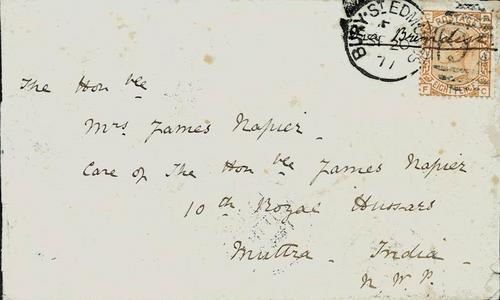 BURY·ST.EDMUNDS
77
Brindisi
POSTAGE
EIGHT PENCE
F G
The Honble
Mrs James Napier
Care of The Honble James Napier
10th Royal Hussars
Muttra India
N.W.P.